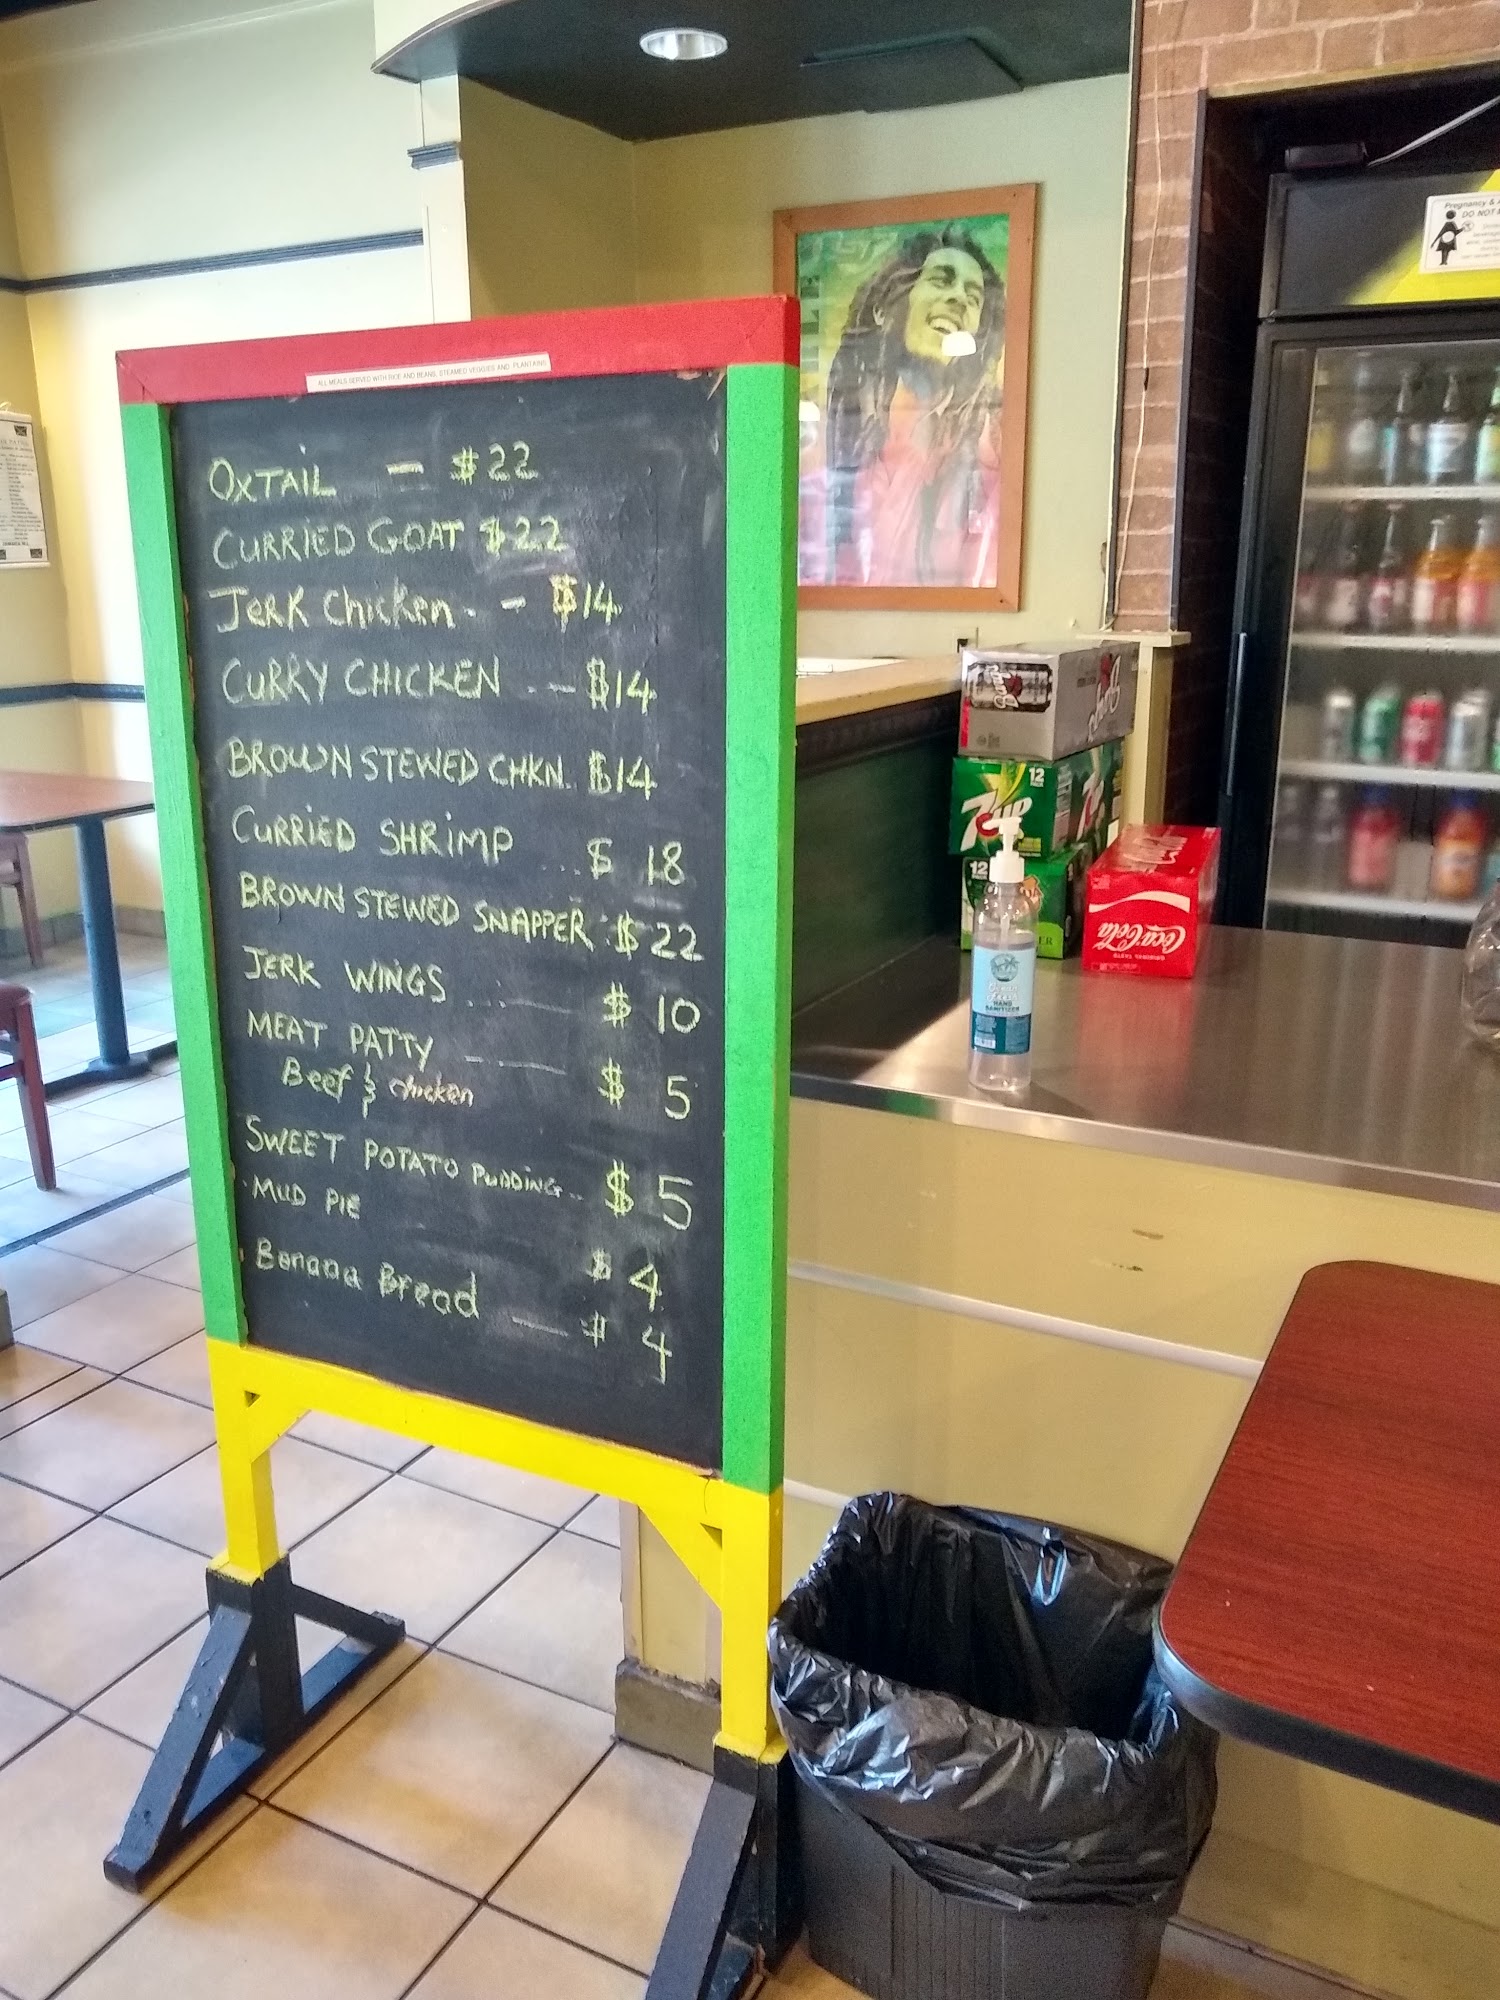 ALL MEALS SERVED WITH RICE AND BEANS, STEAMED VEGGIES AND PLANTAINS
OXTAIL — $22
CURRIED GOAT $22
JERK Chicken - — $14
CURRY CHICKEN - — $14
BROWN STEWED CHKN. $14
CURRIED SHRIMP ... $ 18
BROWN STEWED SNAPPER : $ 22
JERK WINGS ........ $ 10
MEAT PATTY ------ $ 5
Beef & chicken
SWEET POTATO PUDDING.. $ 5
. MUD PIE $ 4
. Banana Bread — $ 4
Pregnancy &
DO NOT
Barq's
Barq's
12
7up
12
Coca-Cola
ORIGINAL TASTE
HAND
SANITIZER